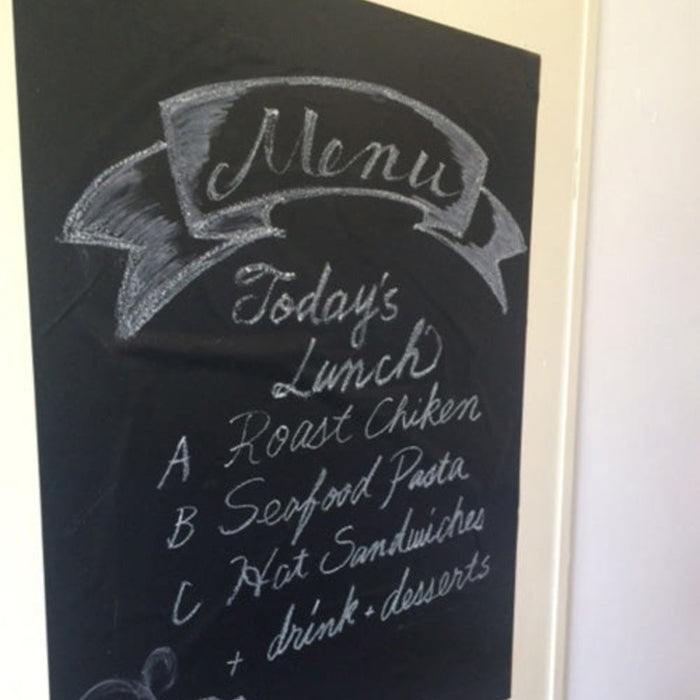 Menu
Today's
Lunch
A Roast Chiken
B Seafood Pasta
C Hot Sandwiches
+ drink + desserts